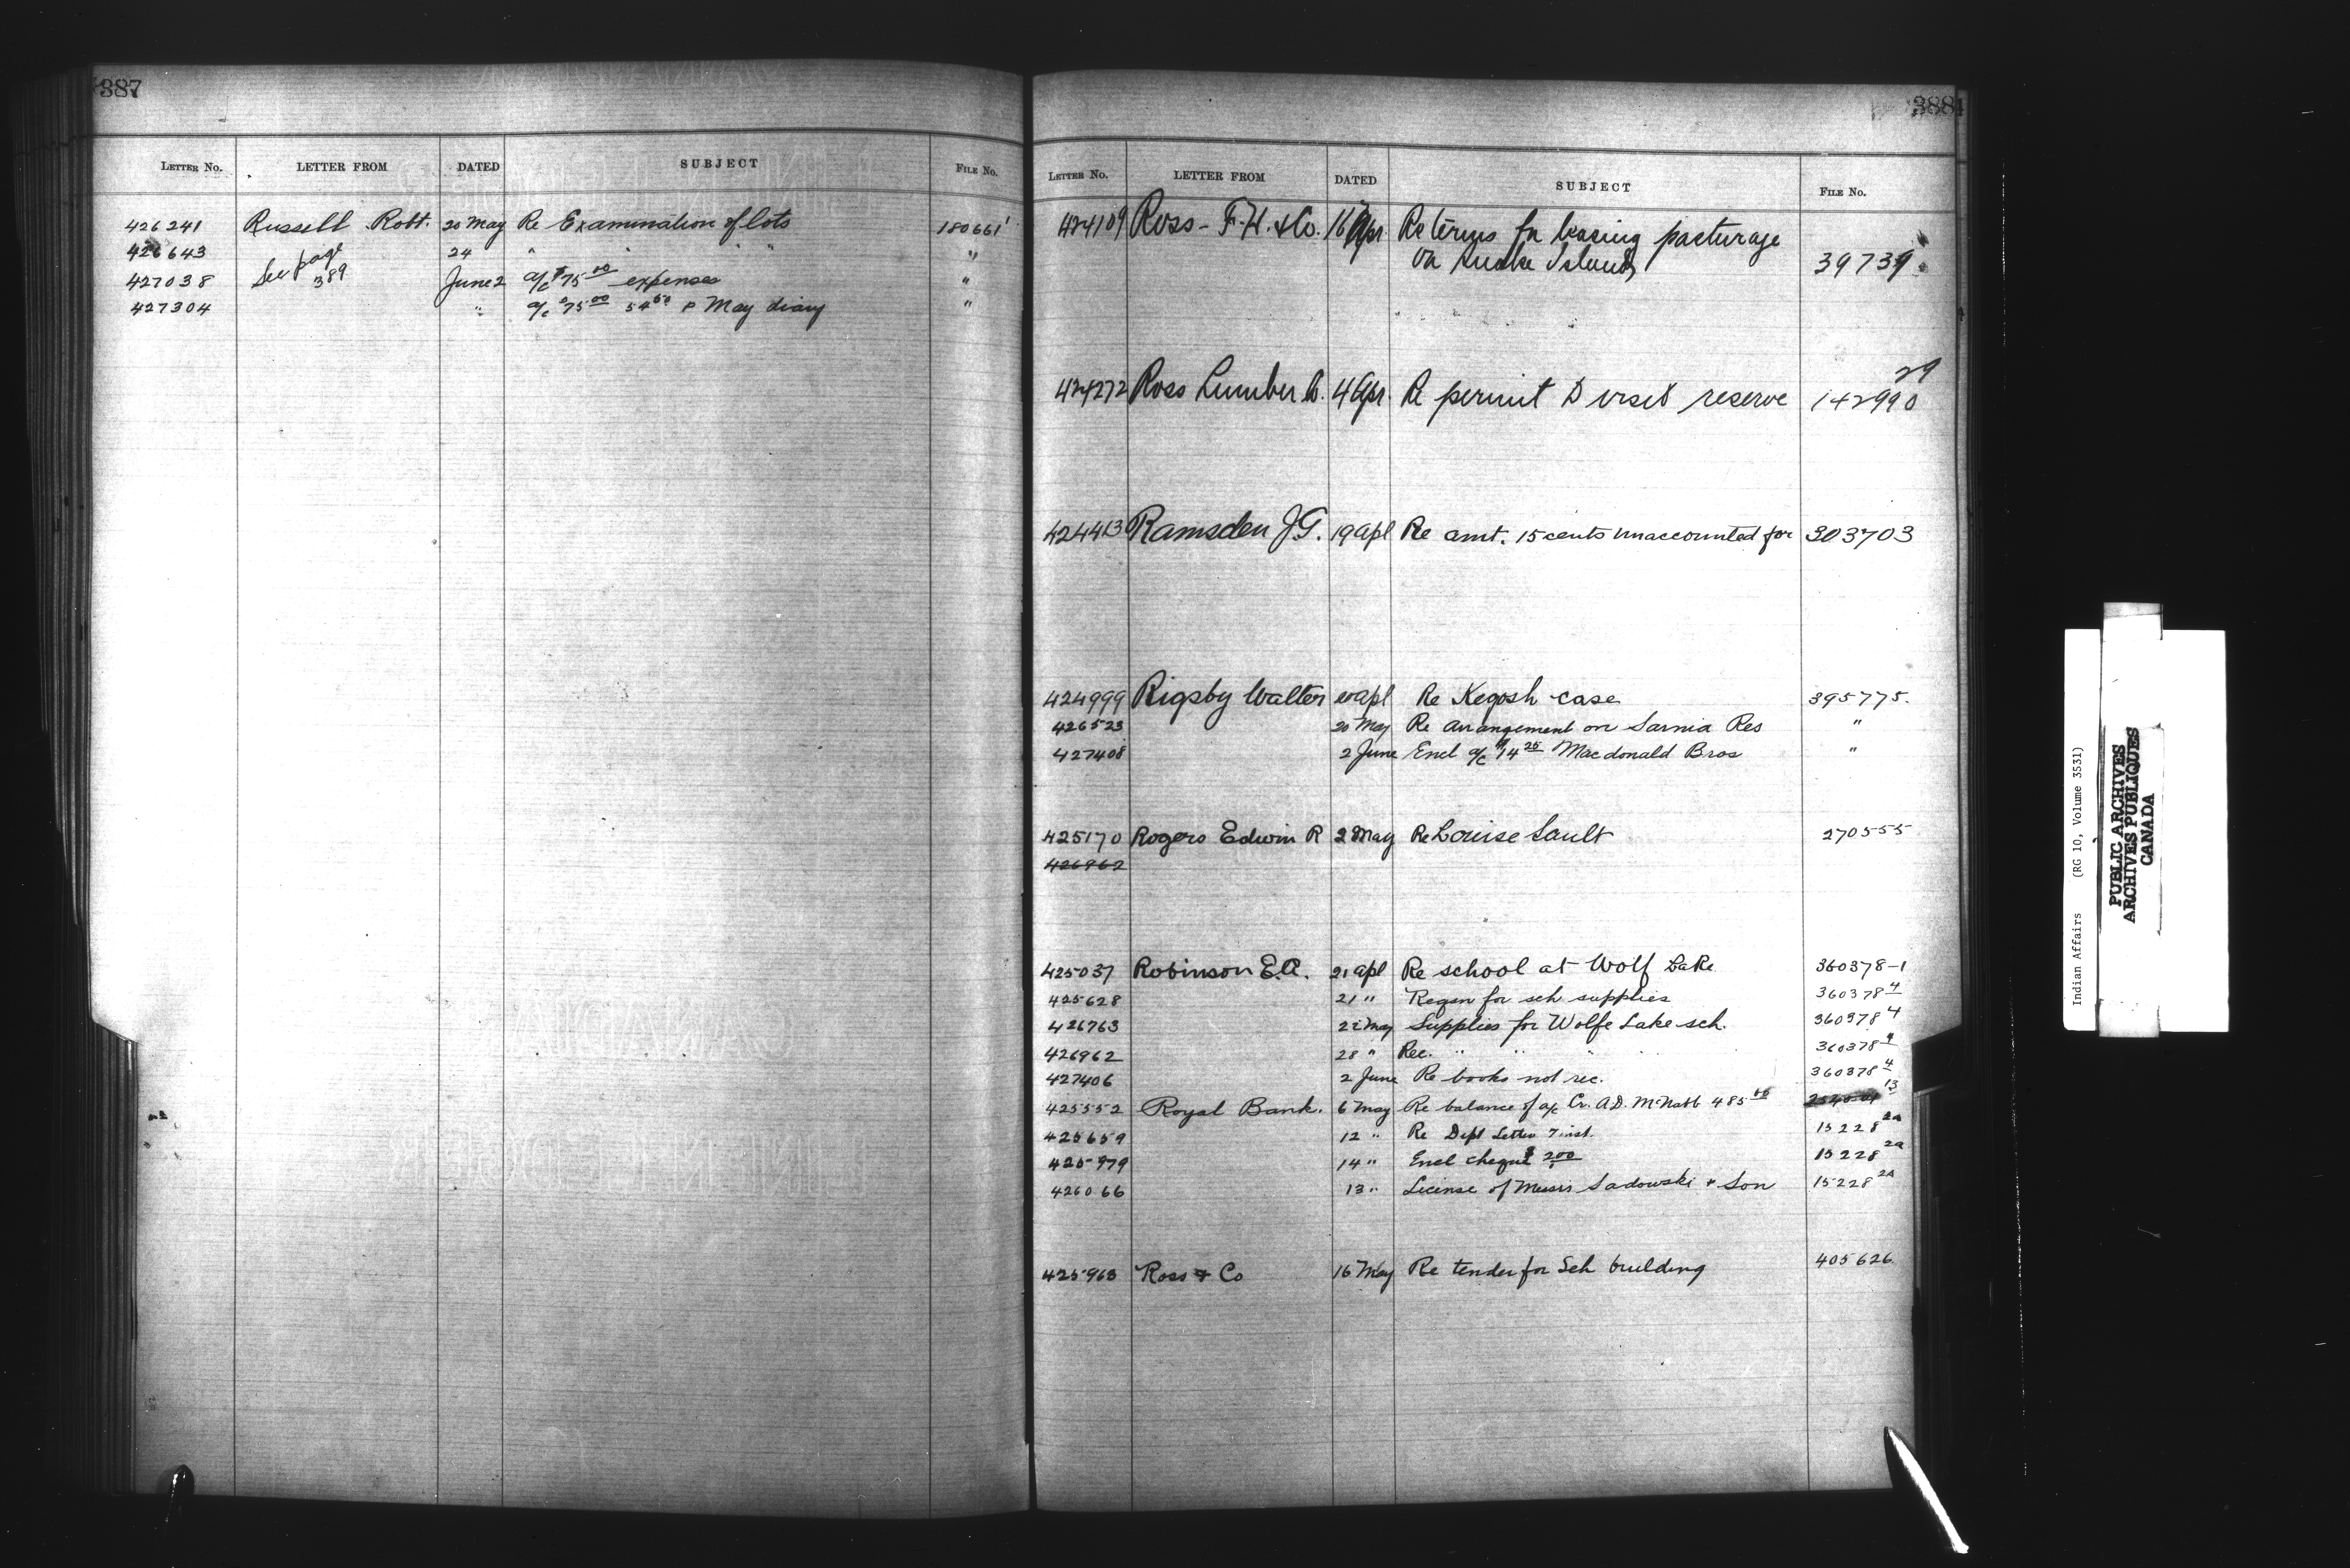 387
LETTER NO. LETTER FROM DATED SUBJECT FILE No.
426241 Russell Robt. 20 May Re Examination of lots 180661¹
426643 See page 389 24 " " " " "
427038 June 2 a/c $75.00 expenses "
427304 " a/c $75.00 54.50 & May diary "
388
LETTER NO. LETTER FROM DATED SUBJECT FILE No.
424109 Ross - F.H. & Co. 16 Apr. Re terms for leasing pasturage
on Snake Island 39739
424272 Ross Lumber Co. 4 Apr. Re permit to visit reserve 142990 29
424413 Ramsden J.G. 19 apl Re amt. 15 cents unaccounted for 303703
424999 Rigsby Walter apl Re Kegosh case 395775.
426523 20 May Re arrangement on Sarnia Res "
427408 2 June Encl a/c $14.25 Macdonald Bros "
425170 Rogers Edwin R 2 May Re Louise Sault 270555
426962
425037 Robinson E.A. 21 apl Re school at Wolf Lake 360378-1
425628 21 " Reqsn for sch supplies 360378 4
426763 22 May Supplies for Wolfe Lake sch. 360378 4
426962 28 " Rec. " " " " 360378 4
427406 2 June Re books not rec. 360378 4
425552 Royal Bank. 6 May Re balance of a/c Cr. A.D. McNabb 485.00 13
425659 12 " Re Dept Letter 7 inst. 15228 2A
425979 14 " Encl cheque $2.00 15228 2A
426066 13 " License of Messrs Sadowski & Son 15228 2A
425963 Ross & Co 16 May Re tender for Sch building 405626
Indian Affairs (RG 10, Volume 3531)
PUBLIC ARCHIVES
ARCHIVES PUBLIQUES
CANADA